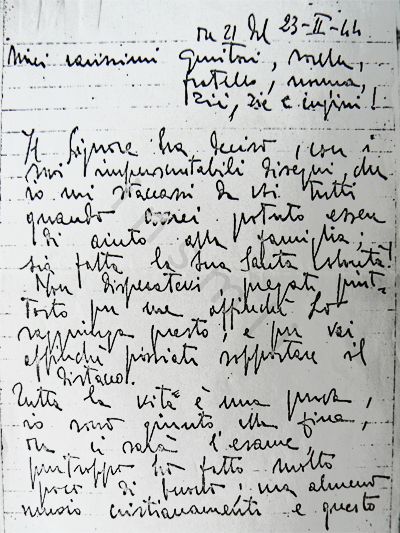 ore 21 del 23-II-44
Miei carissimi genitori, sorella,
fratello, nonna,
zii, zie e cugini!
Il Signore ha deciso, con i
suoi imperscrutabili disegni, che
io mi staccassi da voi tutti
quando avrei potuto essere
di aiuto alla famiglia;
sia fatta la Sua Santa Volontà!
Non disperatevi, pregate piut-
tosto per me affinché Lo
raggiunga presto, e per voi
affinché possiate sopportare il
distacco.
Tutta la vita è una prova,
io sono giunto alla fine,
ora ci sarà l'esame,
purtroppo ho fatto molto
poco di buono, ma almeno
muoio cristianamente e questo